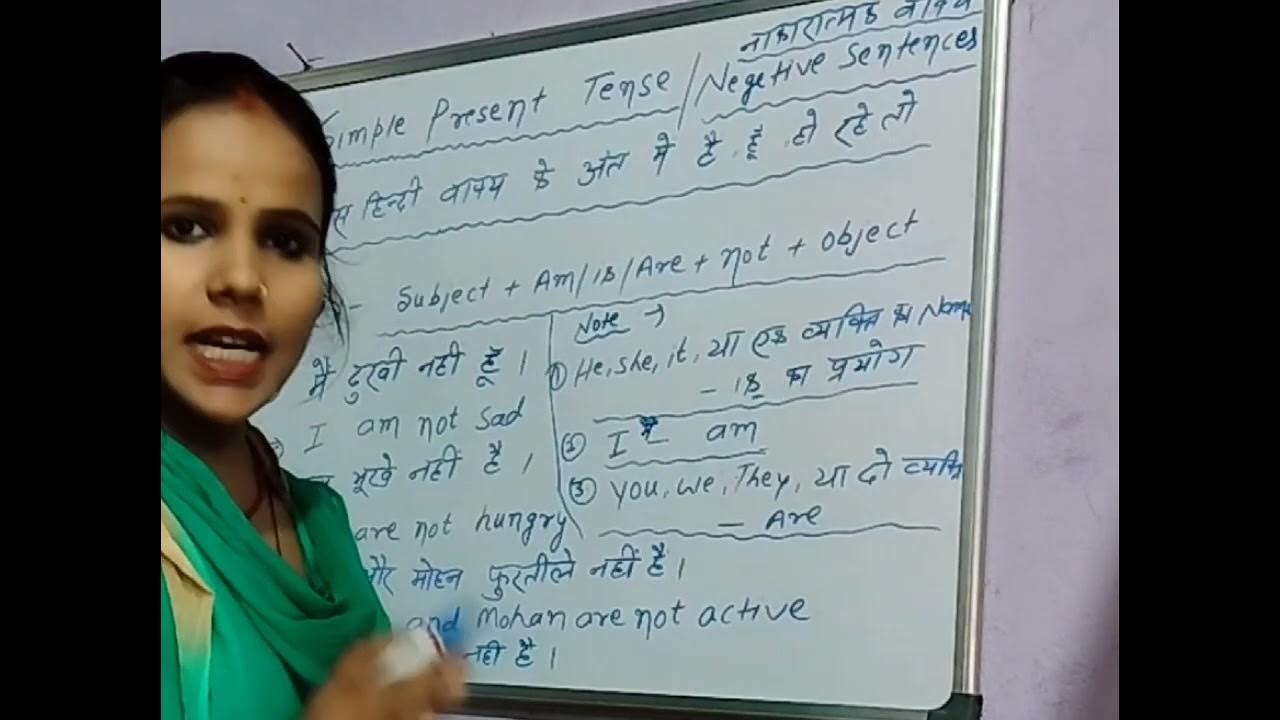 नाकारात्मक वाक्य
Simple Present Tense / Negetive Sentences
हिन्दी वाक्य के अंत में है, हूँ, हो रहे तो
- Subject + Am/is/Are + not + object
Note →
① He, she, it, या एक व्यक्ति का Name
- is का प्रयोग
② I मैं am
③ You, we, They, या दो व्यक्ति
- Are
मैं दुखी नही हूँ ।
I am not sad
भूखे नहीं है ।
are not hungry
और मोहन फुरतीले नहीं है ।
and Mohan are not active
नही है ।